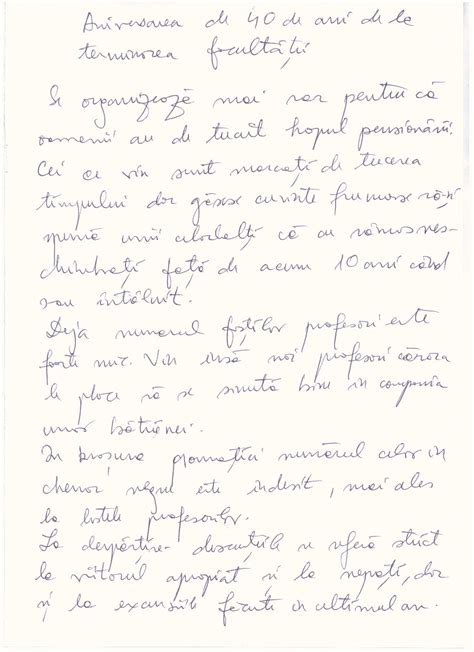 Aniversarea de 40 de ani de la
terminarea facultății
Se organizează mai rar pentru că
oamenii au de trecut hopul pensionării.
Cei ce vin sunt marcați de trecerea
timpului dar găsesc cuvinte frumoase să-și
spună unii celorlalți că au rămas nes-
chimbați față de acum 10 ani când
s-au întâlnit.
Deja numărul foștilor profesori este
foarte mic. Vin însă noi profesori cărora
le place să se simtă bine in compania
unor bătrânei.
In broșura gramatici numărul celor in
chenar negru este indesit, mai ales
la listele profesorilor.
La despărțire discuțiile se referă strict
la viitorul apropiat și la nepoți, dar
și la excursiile făcute in ultimul an.